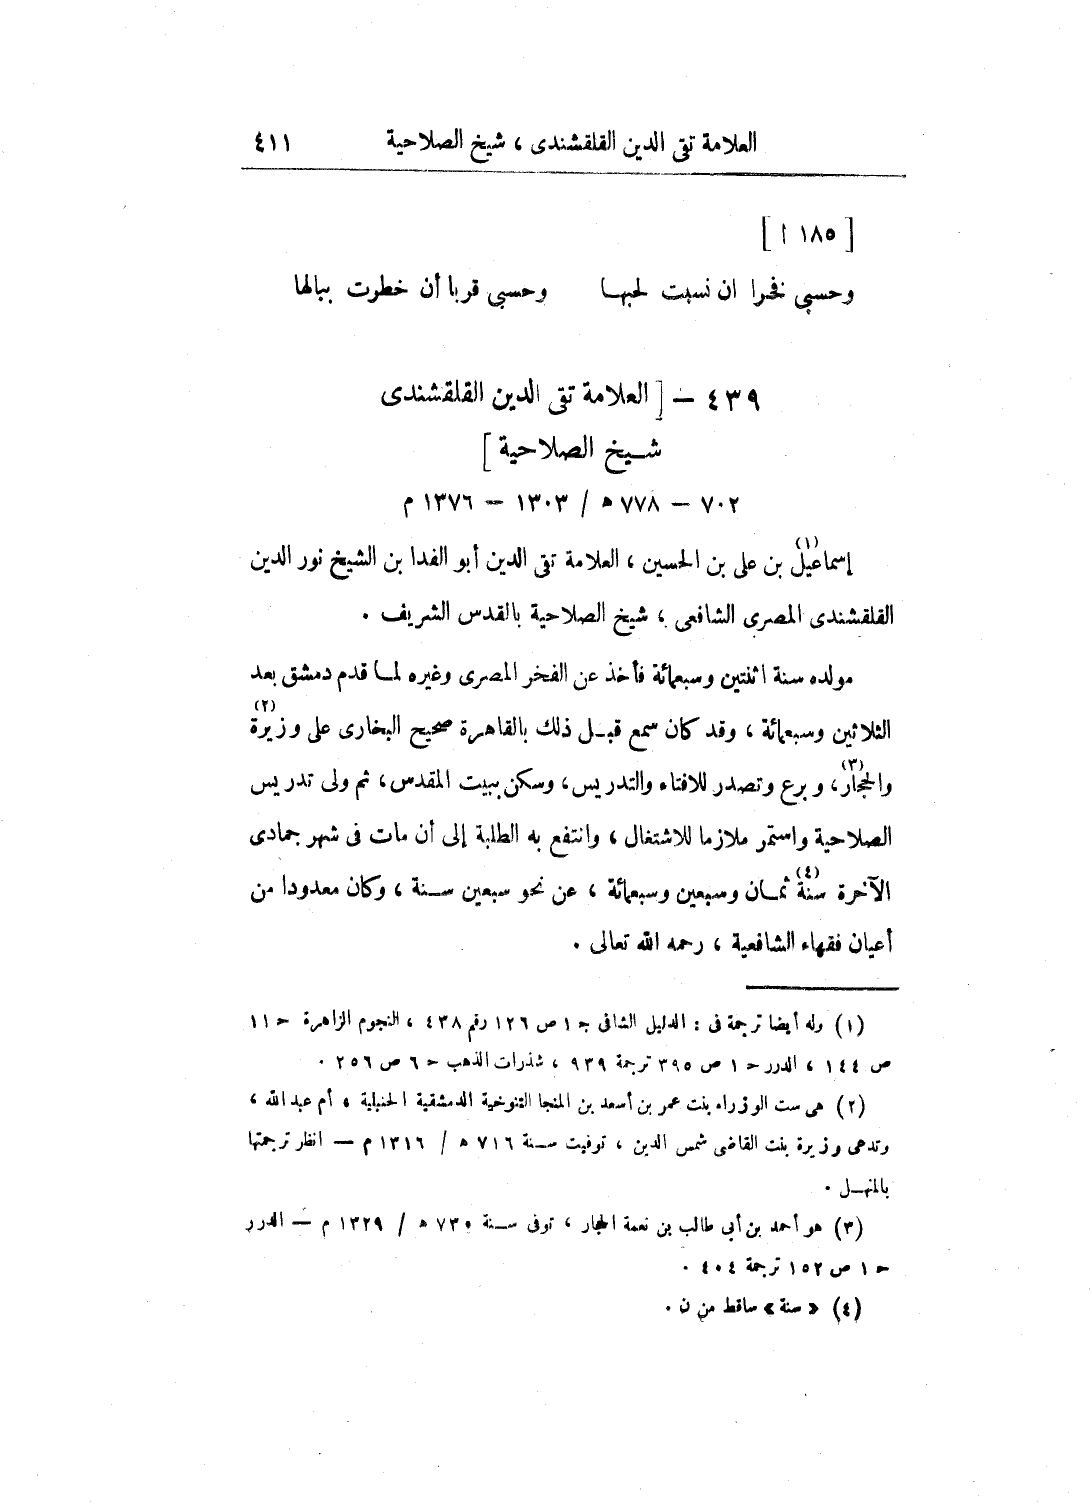 العلامة تقى الدين القلقشندى ، شيخ الصلاحية ٤١١
[ ١٨٥ أ ]
وحسبي فخرا ان نسبت لحبهـا وحسبي قربا أن خطرت ببالها
٤٣٩ — [ العلامة تقى الدين القلقشندى
شـيخ الصلاحية ]
٧٠٢ — ٧٧٨ ه / ١٣٠٣ — ١٣٧٦ م
إسماعيل(١) بن على بن الحسين ، العلامة تقى الدين أبو الفدا بن الشيخ نور الدين
القلقشندى المصرى الشافعى ، شيخ الصلاحية بالقدس الشريف .
مولده سنة اثنتين وسبعمائة فأخذ عن الفخر المصرى وغيره لمـا قدم دمشق بعد
الثلاثين وسبعمائة ، وقد كان سمع قبـل ذلك بالقاهرة صحيح البخارى على وزيرة(٢)
والحجار(٣)، وبرع وتصدر للافتاء والتدريس، وسكن ببيت المقدس، ثم ولى تدريس
الصلاحية واستمر ملازما للاشتغال ، وانتفع به الطلبة إلى أن مات فى شهر جمادى
الآخرة سنة(٤) ثمـان وسبعين وسبعمائة ، عن نحو سبعين سـنة ، وكان معدودا من
أعيان فقهاء الشافعية ، رحمه الله تعالى .
(١) وله أيضا ترجمة فى : الدليل الشافى جـ ١ ص ١٢٦ رقم ٤٣٨ ، النجوم الزاهرة حـ ١١
ص ١٤٤ ، الدرر حـ ١ ص ٣٩٥ ترجمة ٩٣٩ ، شذرات الذهب حـ ٦ ص ٢٥٦ .
(٢) هى ست الوزراء بنت عمر بن أسعد بن المنجا التنوخية الدمشقية الحنبلية ، أم عبد الله ،
وتدعى وزيرة بنت القاضى شمس الدين ، توفيت سـنة ٧١٦ ه / ١٣١٦ م — انظر ترجمتها
بالمنهـل .
(٣) هو أحمد بن أبي طالب بن نعمة الحجار ، توفى سـنة ٧٣٠ ه / ١٣٢٩ م — الدرر
حـ ١ ص ١٥٢ ترجمة ٤٠٤ .
(٤) « سنة » ساقط من ن .